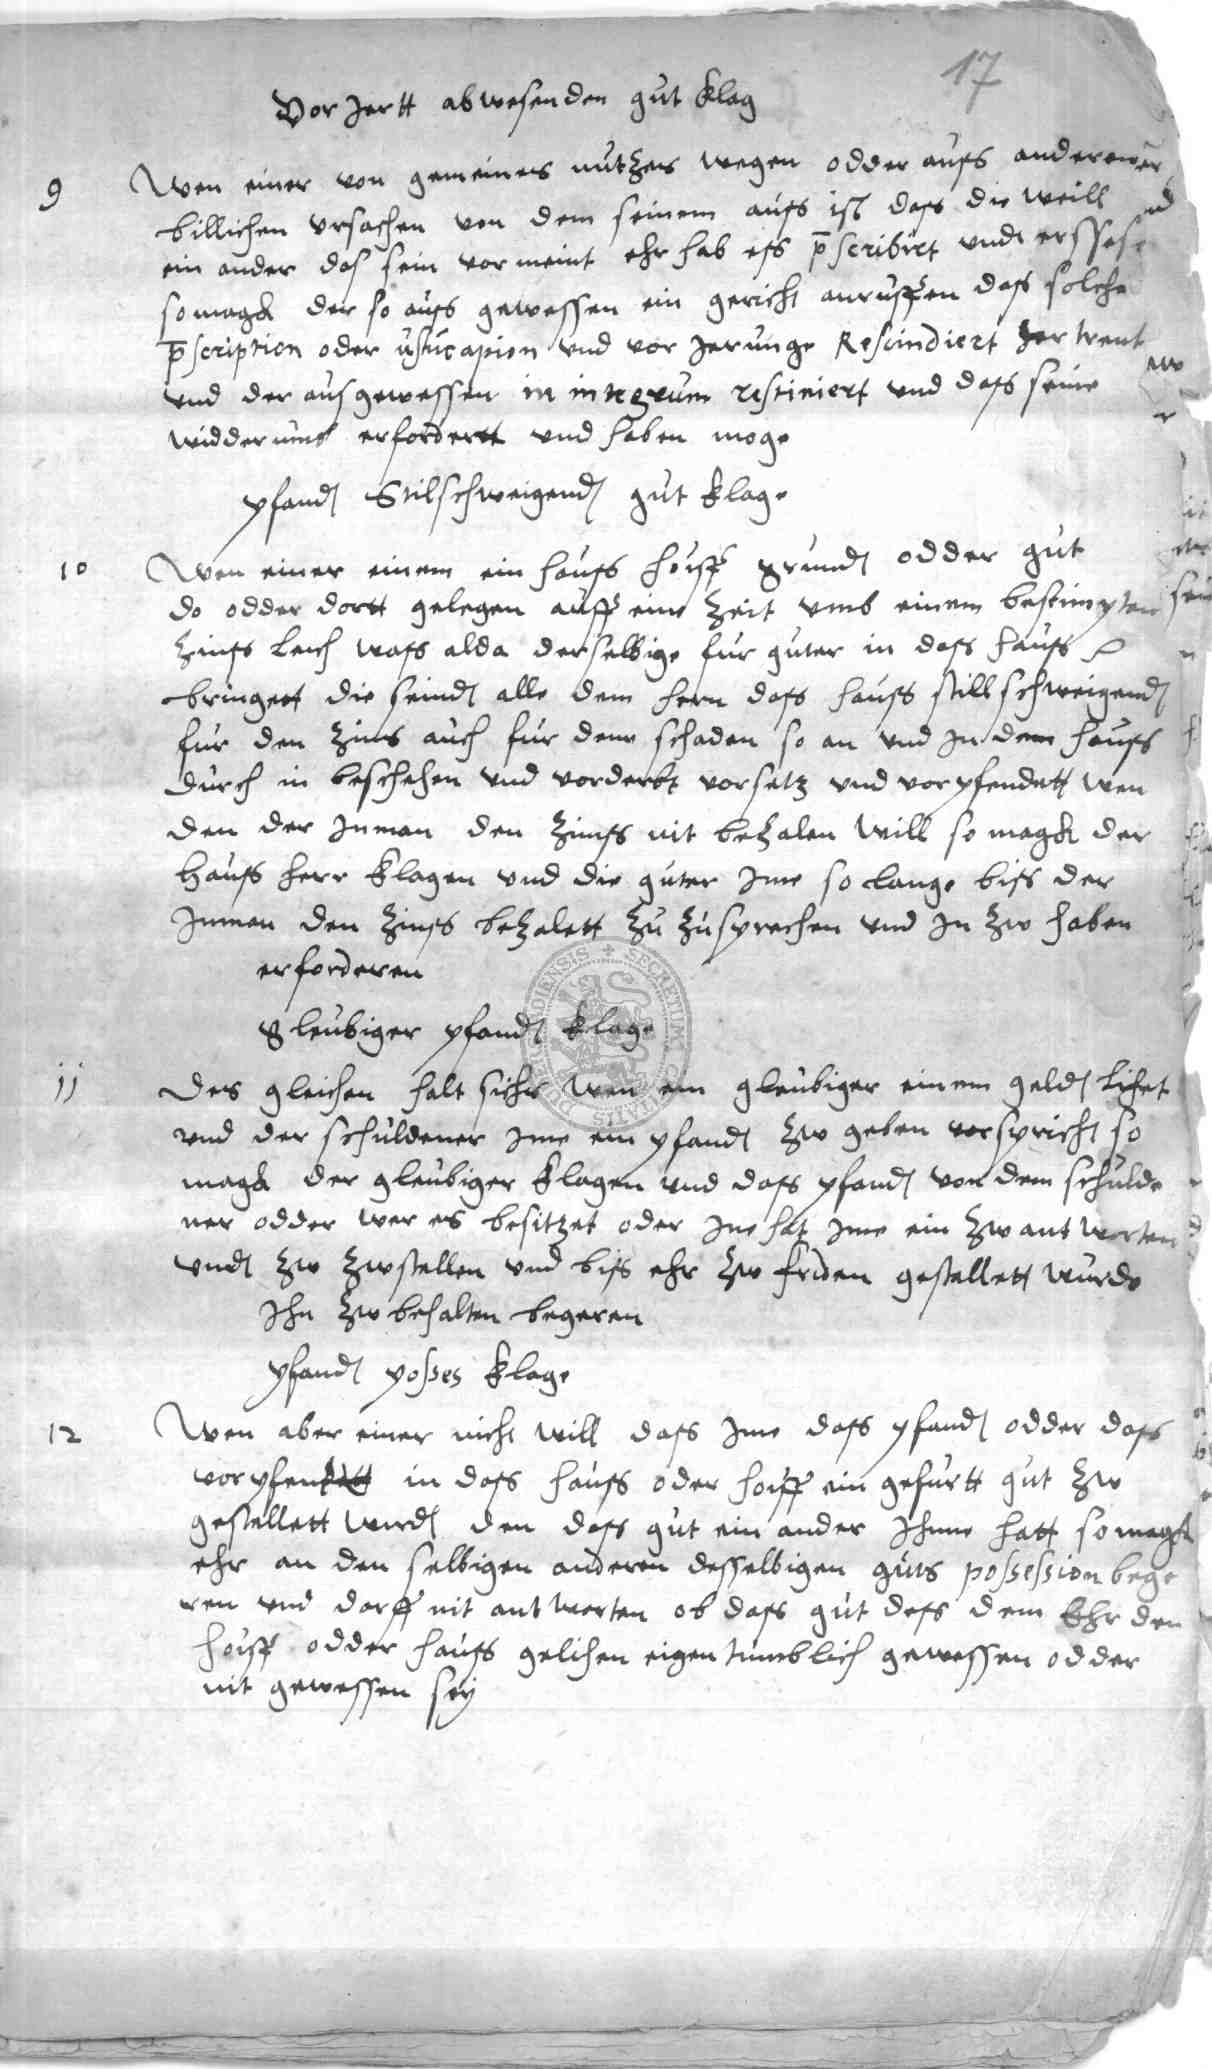 17
Vor Jertt abwesenden gut klag
9 Wen einer von gemeines nutzes wegen odder aufs anderen
billichen ursachen von dem seinem aufs ist dafs die weill
ein ander das sein vormeint ehr hab efs p̄scribirt und ersess
so magk der so aufs gewessen ein gericht anruffen dafs solche
p̄scription oder usucapion und vor Jerunge Rescindiert zertrent
und der ausgewessen in integrum restiniert und dafs seine
widderumb erfordertt und haben moge
pfand Stilschweigend gut klage
10 Wen einer einem ein haufs hoiff grund odder gut
do odder dortt gelegen auff eine zeit umb einem bestimpten
zinfs leich wafs alda derselbige fur guter in dafs haufs
bringett die seind alle dem hern dafs haufs stillschweigend
fur den zins auch fur denn schaden so an und In dem haufs
durch in beschehen und vorderbt vorsetz und vorpfendett wen
den der Inman den zinfs nit bezalen will so magk der
haufs herr klagen und die guter Ime so lange bifs der
Inman den zinfs bezalett zu zusprechen und In zw haben
erforderen
gleubiger pfand klage
11 Des gleichen halt sichs wen ein gleubiger einem geld lihet
und der schuldener Ime ein pfand zw geben vorspricht so
magk der gleubiger klagen und dafs pfand von dem schulde
ner odder wer es besitzet oder Ine hat Ime ein zw antworten
und zw zwstellen und bifs ehr zw friden gestellett wurde
Ihn zw behalten begeren
pfand posses klage
12 Wen aber einer nicht will dafs Ime dafs pfand odder dafs
vorpfendett in dafs haufs oder hoiff ein gefurtt gut zw
gestellett wird den dafs gut ein ander Ihnne hatt so magk
ehr an den selbigen anderen desselbigen guts possession bege
ren und dorff nit antworten ob dafs gut defs dem Ehr den
hoiff odder haufs gelihen eigentumblich gewessen odder
nit gewessen sey